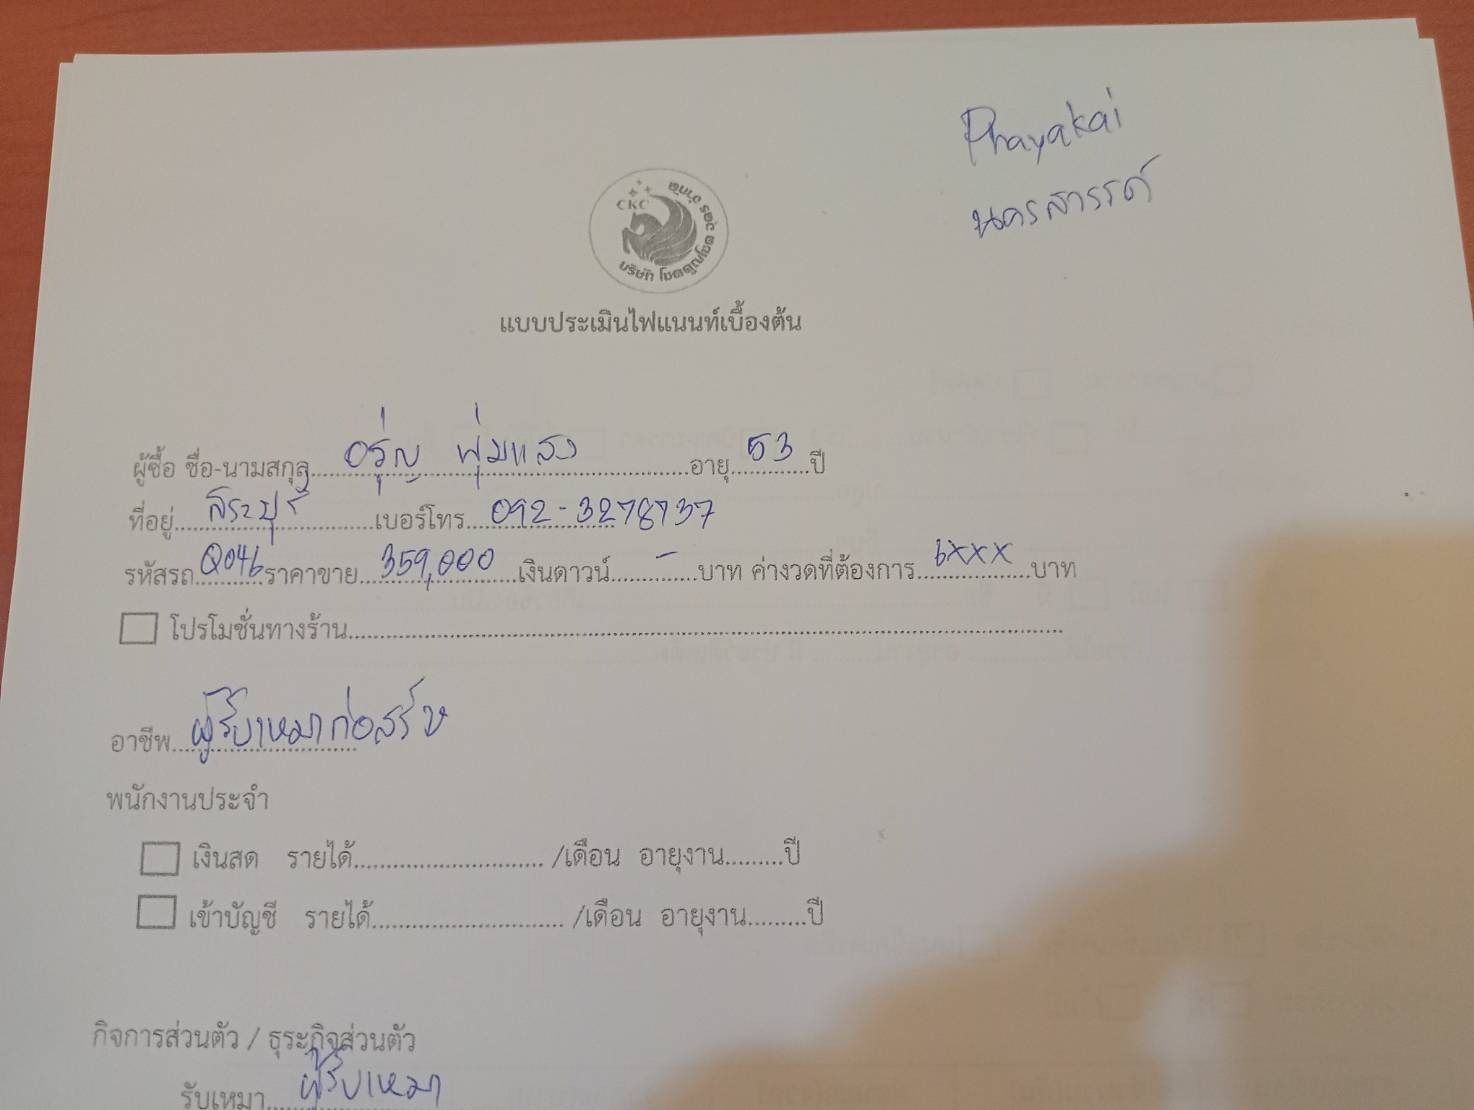 Phayakai
นครสวรรค์
CKC
บริษัท โชคคูณเจริญ จำกัด
แบบประเมินไฟแนนท์เบื้องต้น
ผู้ซื้อ ชื่อ-นามสกุล อรุญ พุ่มแสง อายุ 53 ปี
ที่อยู่ สระบุรี เบอร์โทร 092-3278737
รหัสรถ Q046 ราคาขาย 359,000 เงินดาวน์ - บาท ค่างวดที่ต้องการ 6xxx บาท
โปรโมชั่นทางร้าน
อาชีพ ผู้รับเหมาก่อสร้าง
พนักงานประจำ
เงินสด รายได้ /เดือน อายุงาน ปี
เข้าบัญชี รายได้ /เดือน อายุงาน ปี
กิจการส่วนตัว / ธุระกิจส่วนตัว
รับเหมา ผู้รับเหมา